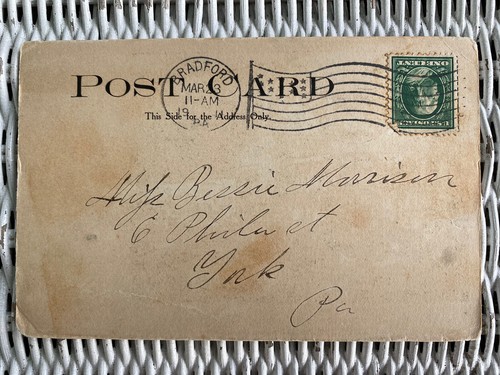 POST CARD
This Side for the Address Only.
BRADFORD
MAR 26
11-AM
19
PA
U.S. POSTAGE
ONE CENT
Miss Bessie Morrison
E Phila st
York
Pa